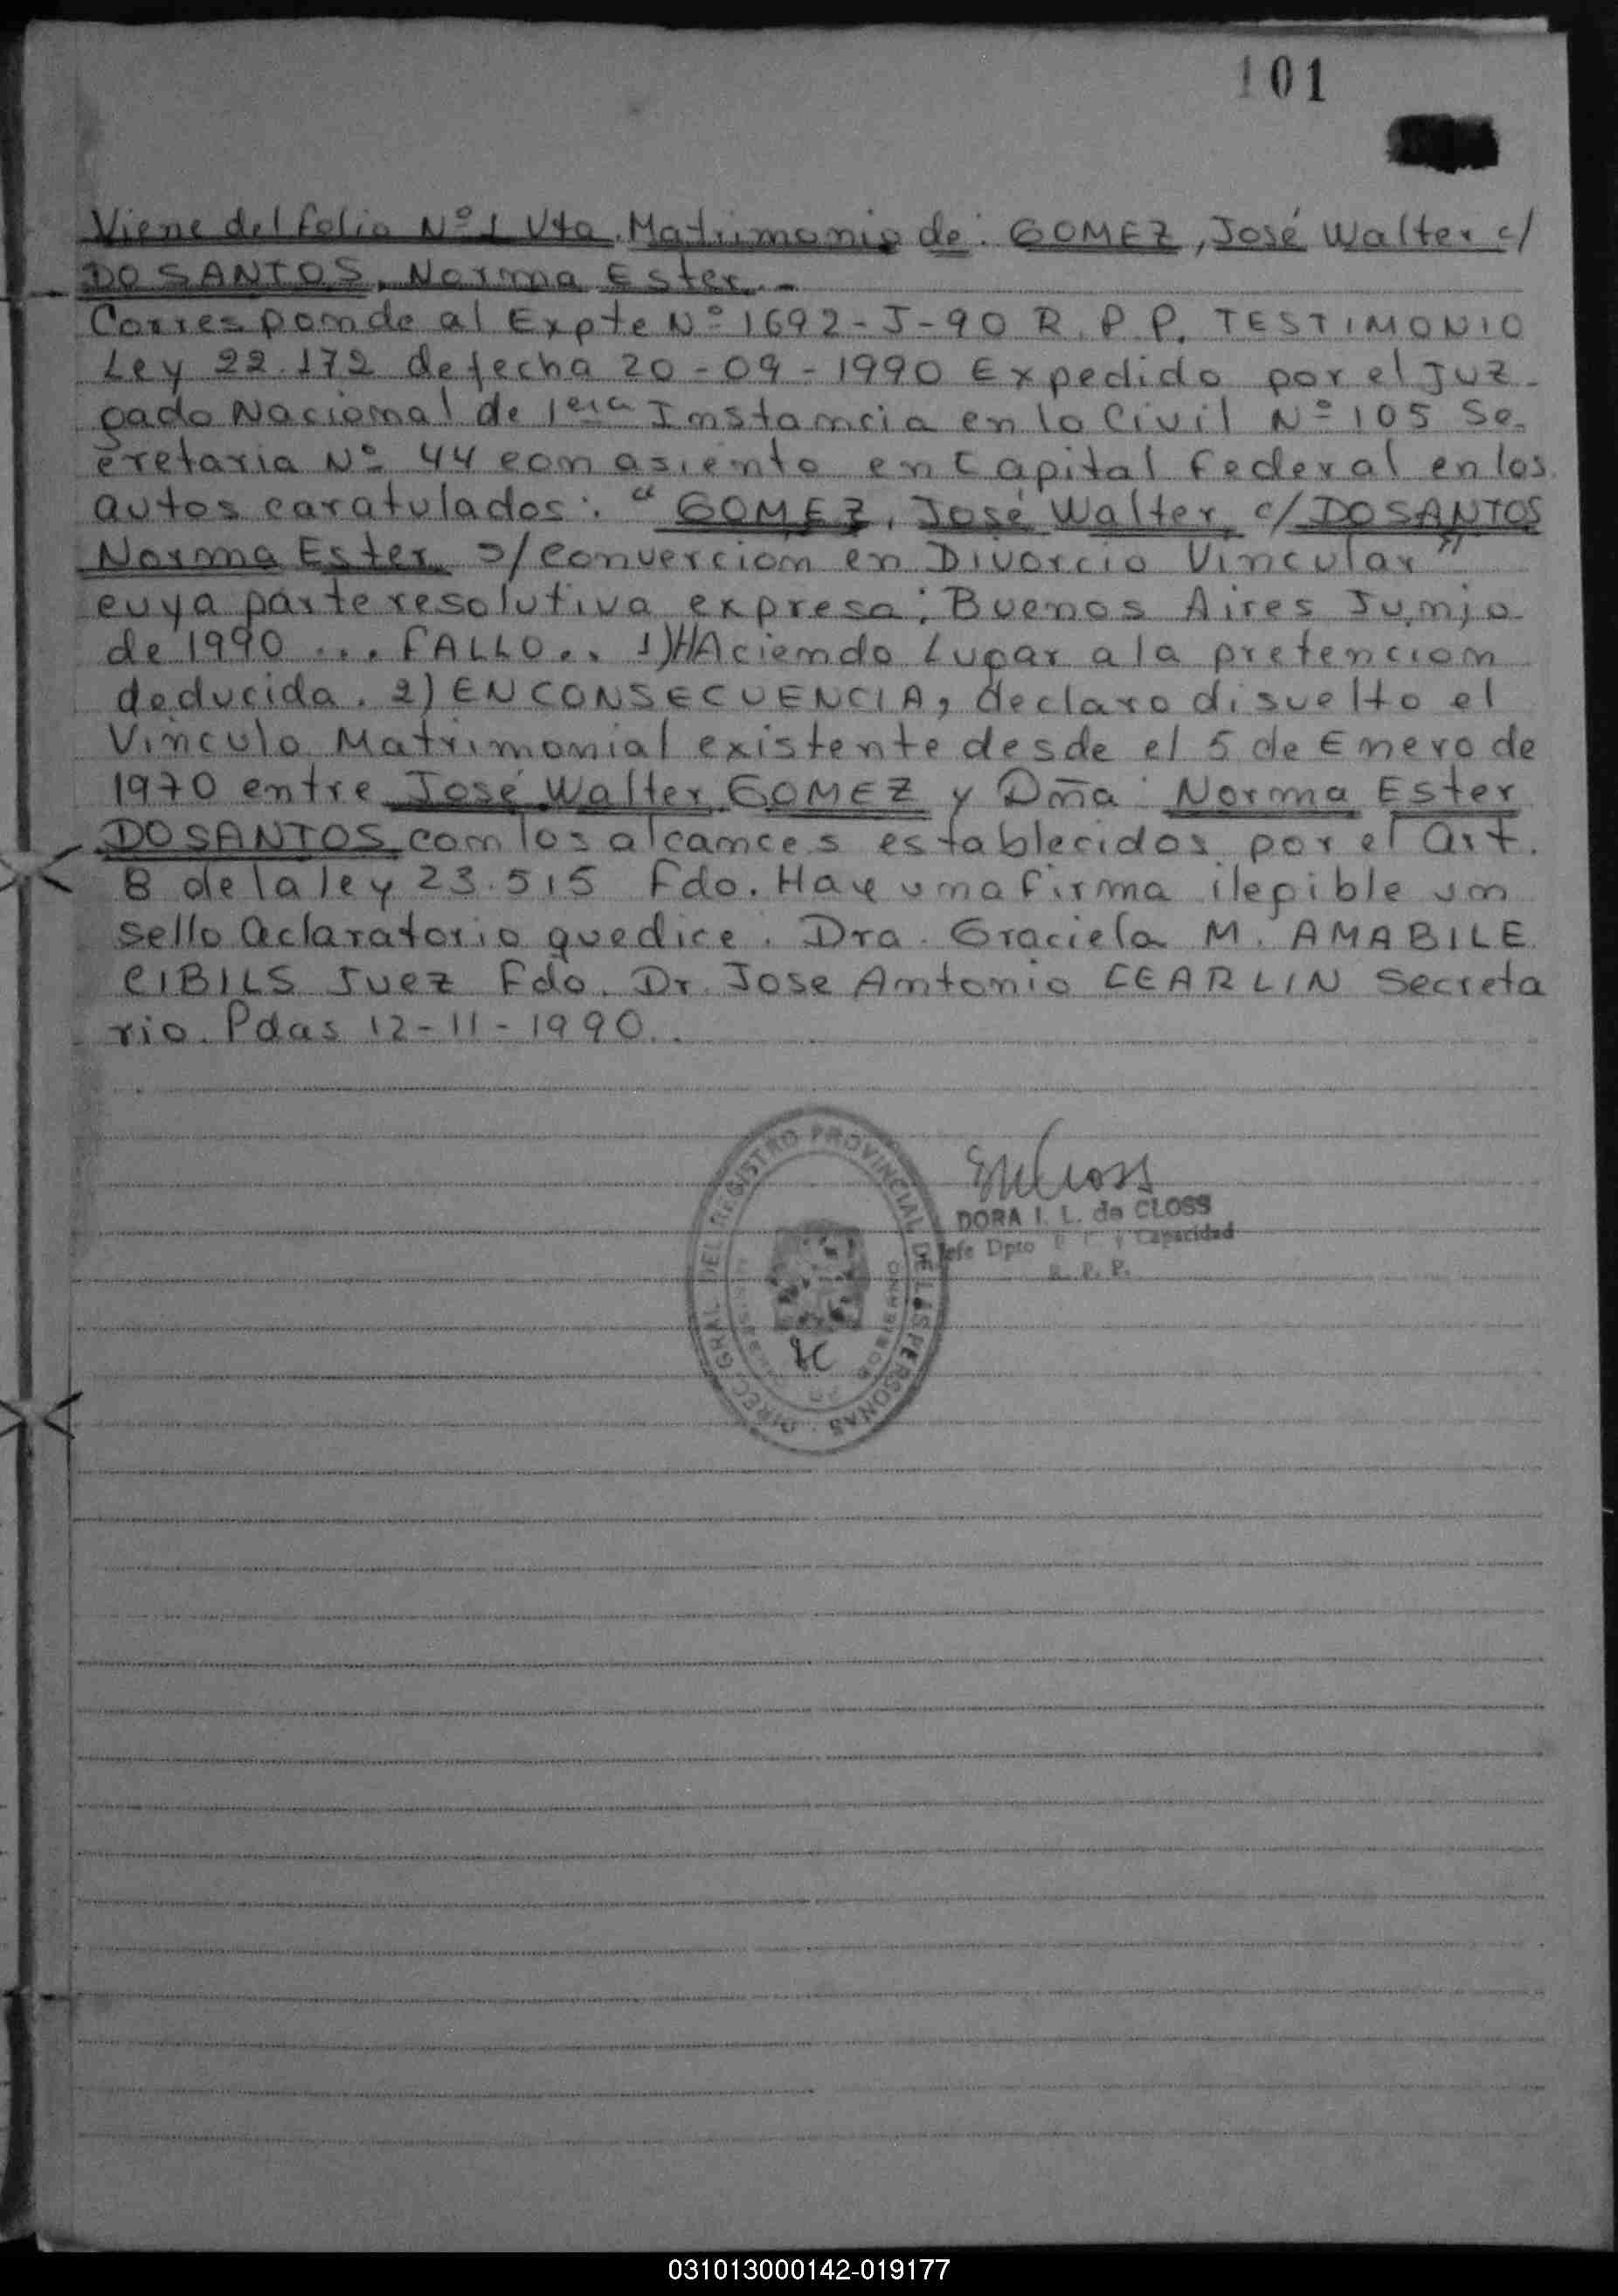 101
Viene del folio Nº 1 Vta. Matrimonio de: GOMEZ, José Walter c/
DO SANTOS, Norma Ester.-
Corresponde al Expte Nº 1692-J-90 R.P.P. TESTIMONIO
Ley 22.172 de fecha 20-09-1990 Expedido por el Juz-
gado Nacional de 1era Instancia en lo Civil Nº 105 Se-
cretaria Nº 44 con asiento en Capital Federal en los
autos caratulados: "GOMEZ, José Walter c/ DO SANTOS
Norma Ester s/ convercion en Divorcio Vincular"
cuya parte resolutiva expresa: Buenos Aires Junio
de 1990 ... FALLO.. 1) HAciendo Lugar a la pretencion
deducida. 2) EN CONSECUENCIA, declaro disuelto el
Vinculo Matrimonial existente desde el 5 de Enero de
1970 entre José Walter GOMEZ y Dña Norma Ester
DO SANTOS con los alcances establecidos por el Art.
8 de la ley 23.515 Fdo. Hay una firma ilegible un
sello aclaratorio que dice: Dra. Graciela M. AMABILE
CIBILS Juez Fdo. Dr. Jose Antonio CEARLIN Secreta
rio. Pdas 12-11-1990..
DIREC. GRAL DEL REGISTRO PROVINCIAL DE LAS PERSONAS
DORA I. L. de CLOSS
Jefe Dpto E. C. y Capacidad
R. P. P.
031013000142-019177